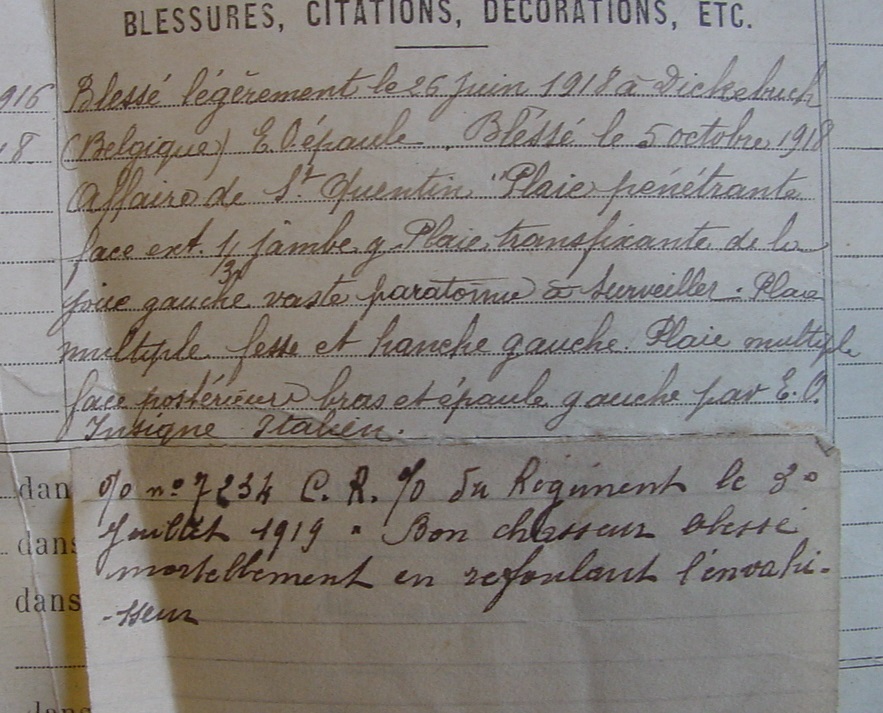 BLESSURES, CITATIONS, DÉCORATIONS, ETC.
916 Blessé légèrement le 26 Juin 1918 à Dickebuch
18. (Belgique) E.O épaule. Bléssé le 5 octobre 1918
Affaire de St Quentin "Plaie pénétrante
face ext. 1/3 jambe g. Plaie transfixante de la
joue gauche vaste à surveiller - Plaie
multiple fesse et hanche gauche. Plaie multiple
face postérieure bras et épaule gauche par E.O.
Insigne Italien.
dan % no 7234 C.R. % du Régiment le 30
dans Juillet 1919 " Bon chasseur blessé
mortellement en refoulant l'envahi-
dans -sseur
dans